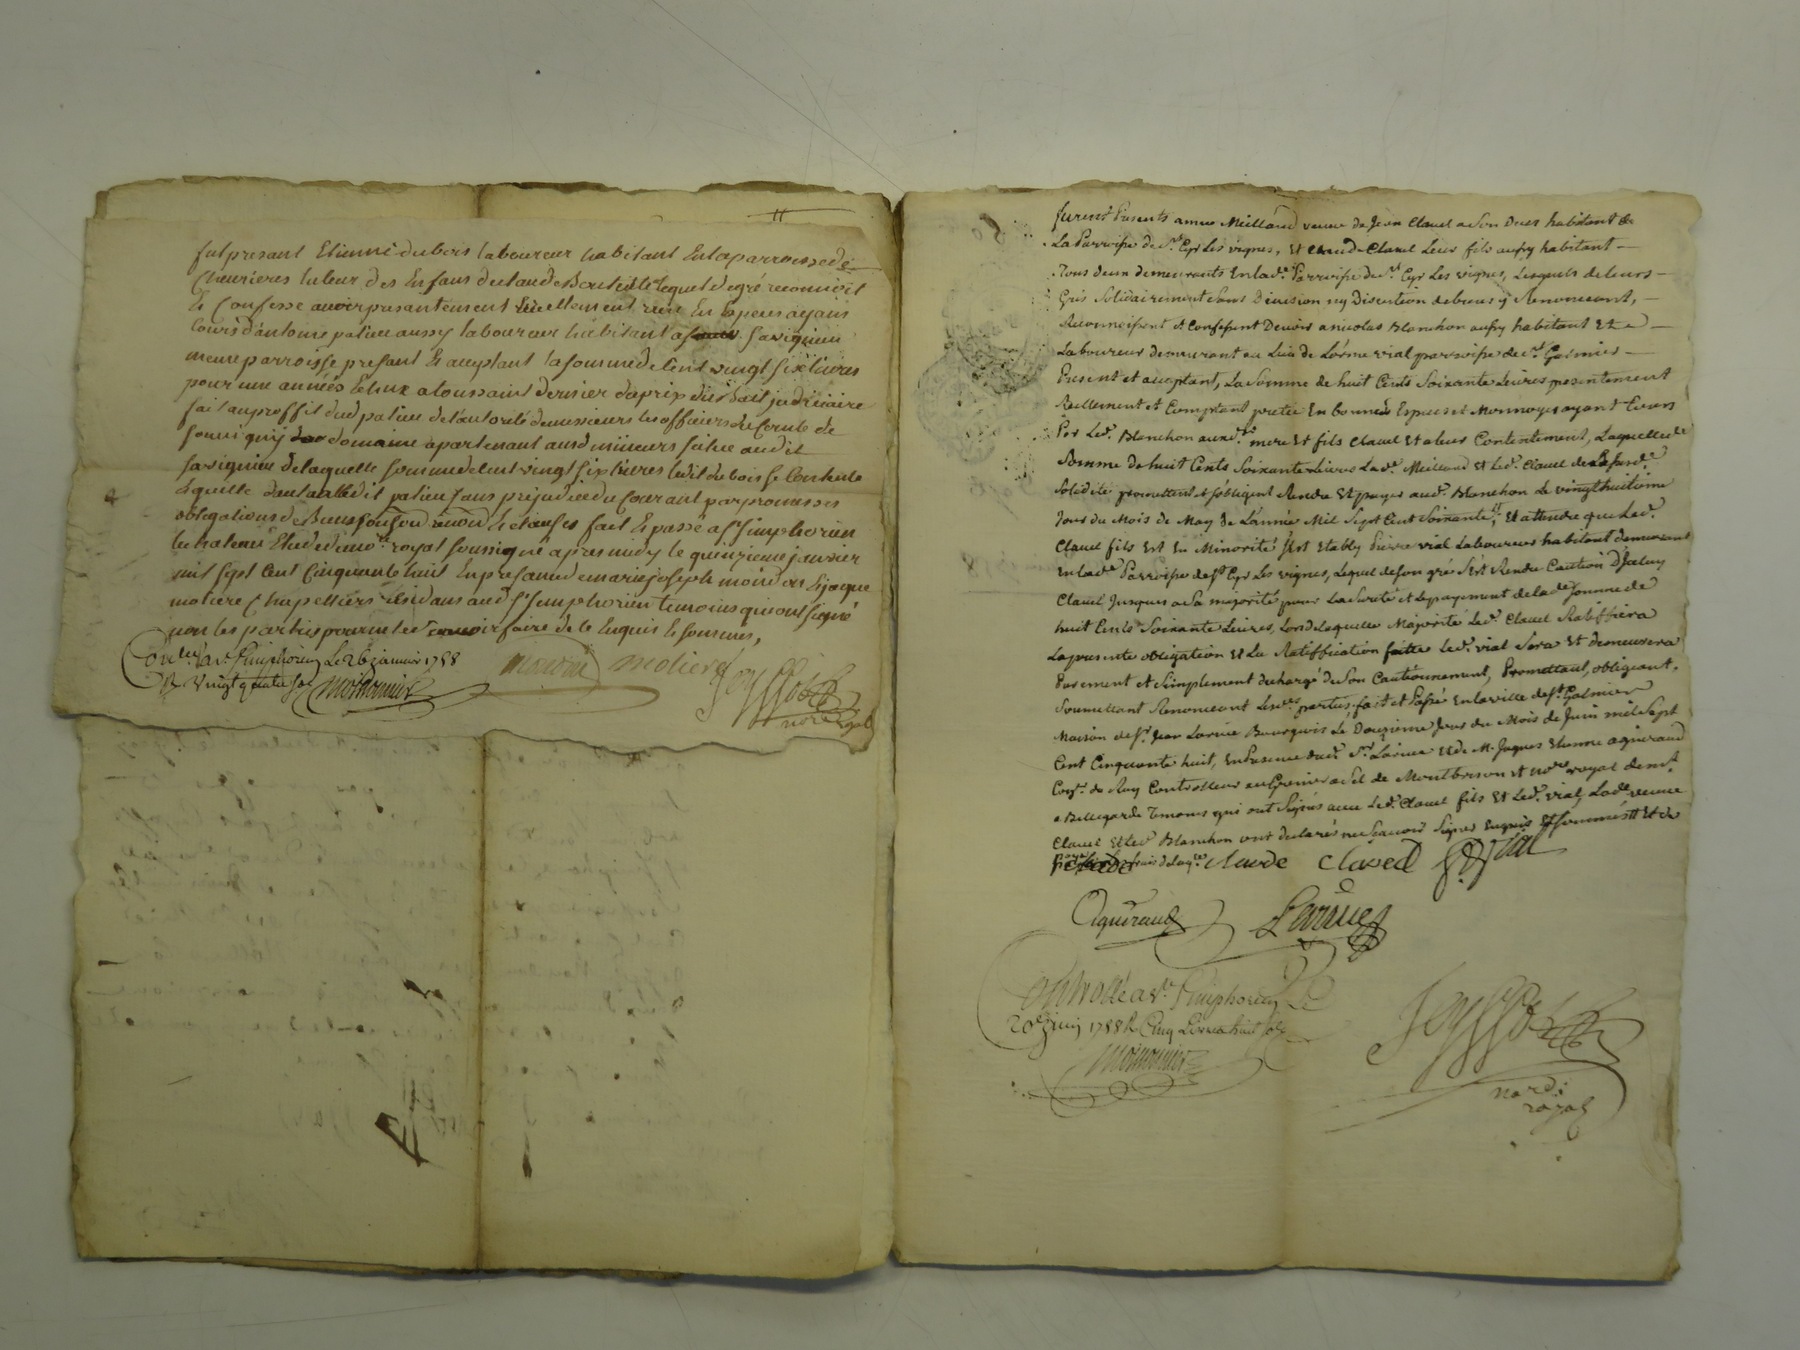 fut presant Etienne dubois laboureur habitant En la parroisse de
Chevrieres tuteur des Enfans de claude Bouteille lequel de gré reconnoit
Et Confesse avoir presantement réellement reçu En Especes ayans
Cours d'antoine palieu aussy laboureur habitant a savignieu
meme parroisse presant Et aceptant la somme de Cent vingt six livres
pour une année Echue a toussaint dernier du prix du bail judiciaire
fait au proffit dud palieu de l'autorité de messieurs les officiers du Comté de
souvigny du domaine apartenant aud mineurs situé audit
savignieu de laquelle somme de Cent vingt six livres ledit dubois se Contente
Et quitte ledit palieu sans préjudice du Courant par promesses
obligations de Biens Et clauses fait Et passé a St simphorien
le chateau Etude de no.re royal soussigné apres midy le quinzieme janvier
mil sept Cent Cinquante huit En presance de marie joseph moindon Et jaque
moliere Chapelliers résidans aud St simphorien temoins qui ont signé
non les parties pour ne le sçavoir faire de ce Enquis Et sommés,
Con.llé a St Simphorien Le 26 janvier 1758
R. Vingt quatre sols
molieres
no.re royal
furent Presents anne Meilland veuve de Jean Clavel a Son Dces habitant de
La Parroisse de St. Cyr Les vignes, Et Claude Clavel Leur fils aussy habitant
Tous deux demeurants En lad.e Parroisse de St. Cyr Les vignes, Lesquels de leurs
Grés Solidairement Sans Division ny Discution de biens y Renonceant,
Reconnoissent et Confessent Devoir a nicolas Blanchon aussy habitant Et
Laboureur demeurant au Lieu de Lorme vial parroisse de St. Galmier
Present et aceptant, La Somme de huit Cents Soixante Livres presentement
Reellement et Comptant pretée En bonnes Especes et Monnoyes ayant Cours
Par Led. Blanchon auxd.ts mere Et fils Clavel Et a leur Contentement, Laquelle de
Somme de huit Cents Soixante Livres Lad.e Meilland et Led. Clavel
Solidité promettent et s'obligent Rendre Et payer aud. Blanchon Le vingt huitieme
Jour du Mois de May de L'année Mil Sept Cent Soixante; Et attendu que Led.
Clavel fils Est En Minorité s'Est Etably Pierre vial Laboureur habitant demeurant
En lad.e Parroisse de St. Cyr Les vignes, Lequel de son gré s'Est Rendu Caution Dud.
Clavel Jusques a Sa majorité pour La Sureté et Le payement de lad.e Somme de
huit Cents Soixante Livres, Lors de laquelle Majorité Led. Clavel Ratiffiera
La presente obligation Et La Ratiffication faitte Led. vial Sera Et demeurera
Purement et Simplement dechargé de Son Cautionnement, Promettant, obligeant,
Soumettant Renonceant Lesd. parties, fait et Passé En la ville de St. Galmier
Maison de Sr. Jean Larue Bourgeois Le Douzieme Jour du Mois de Juin mil Sept
Cent Cinquante huit, En Presence dud. Sr. Larue Et de M. Jaques Etienne aguiraud
Con.r du Roy Controlleur au Grenier a Sel de Montbrison et no.re royal de
a Bellegarde Temoins qui ont Signés avec Led. Clavel fils Et Led. vial, Lad.e veuve
Clavel Et Led. Blanchon ont declarés ne Sçavoir Signer Enquis Et Sommés
claude clavel P. vial
Aguiraud Larue
Controllé a St. Simphorien Le
20 Juin 1758 R. Cinq Livres huit sols
no.re
royal